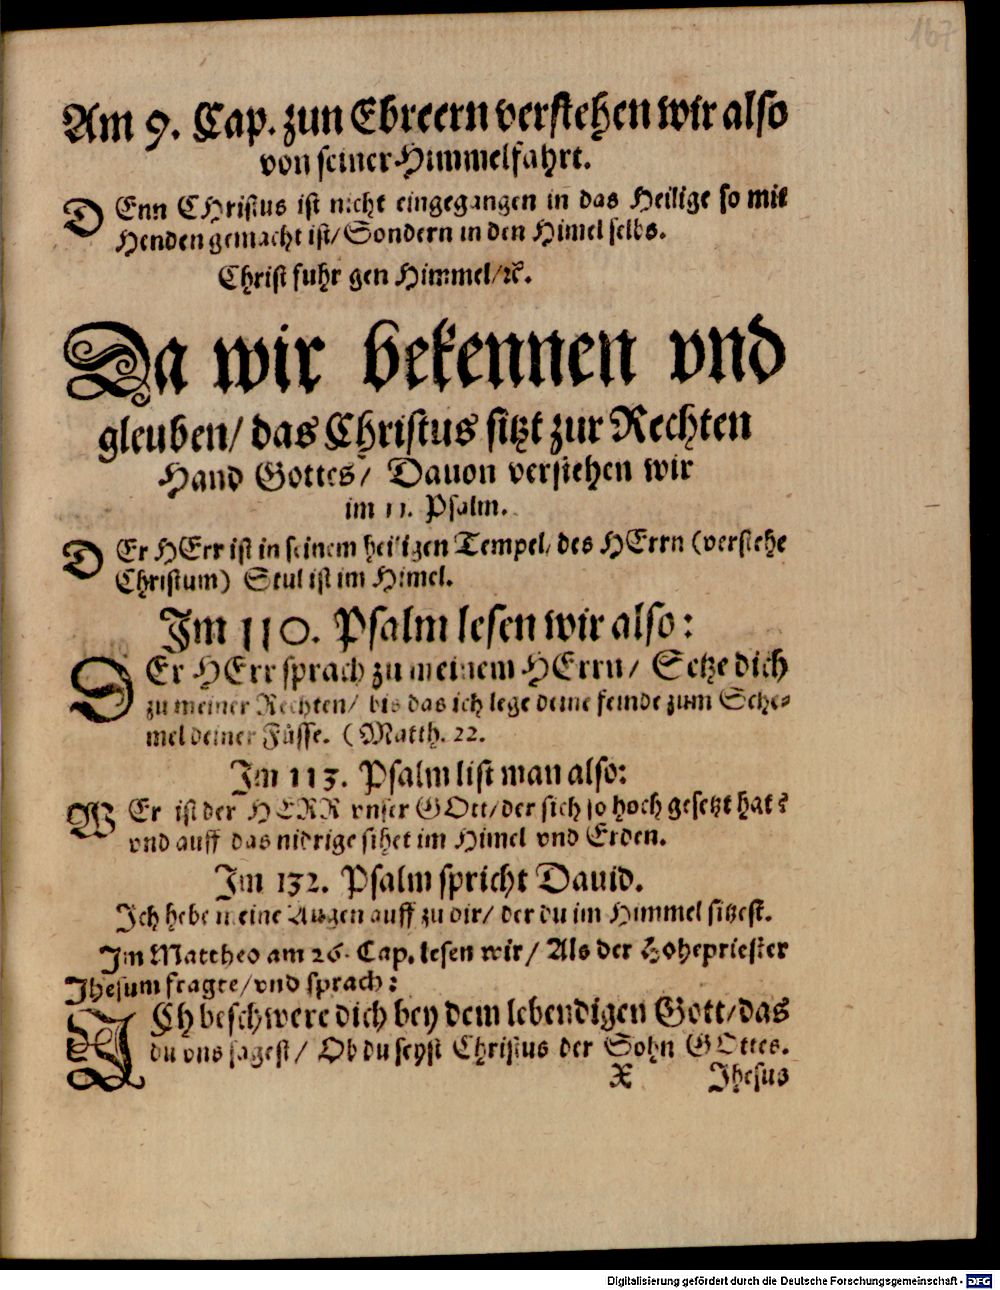 167
Am 9. Cap. zun Ebreern verstehen wir also
von seiner Himmelfahrt.
DEnn CHristus ist nicht eingegangen in das Heilige so mit
Henden gemacht ist/ Sondern in den Himel selbs.
Christ fuhr gen Himmel/ ꝛc.
Da wir bekennen vnd
gleuben/ das Christus sitzt zur Rechten
Hand Gottes/ Dauon verstehen wir
im 11. Psalm.
DEr HErr ist in seinem heiligen Tempel/ des HErrn (verstehe
Christum) Stul ist im Himel.
Im 110. Psalm lesen wir also:
DEr HErr sprach zu meinem HErrn/ Setze dich
zu meiner Rechten/ bis das ich lege deine feinde zum Sche-
mel deiner Füsse. (Matth. 22.
Im 113. Psalm list man also:
WEr ist der HERR vnser GOtt/ der sich so hoch gesetzt hat?
vnd auff das nidrige sihet im Himel vnd Erden.
Im 132. Psalm spricht Dauid.
Ich hebe meine Augen auff zu dir/ der du im Himmel sitzest.
Im Mattheo am 26. Cap. lesen wir/ Als der Hohepriester
Jhesum fragte/ vnd sprach:
ICh beschwere dich bey dem lebendigen Gott/ das
du vns sagest/ Ob du seyst Christus der Sohn GOttes.
X Jhesus
Digitalisierung gefördert durch die Deutsche Forschungsgemeinschaft - DFG